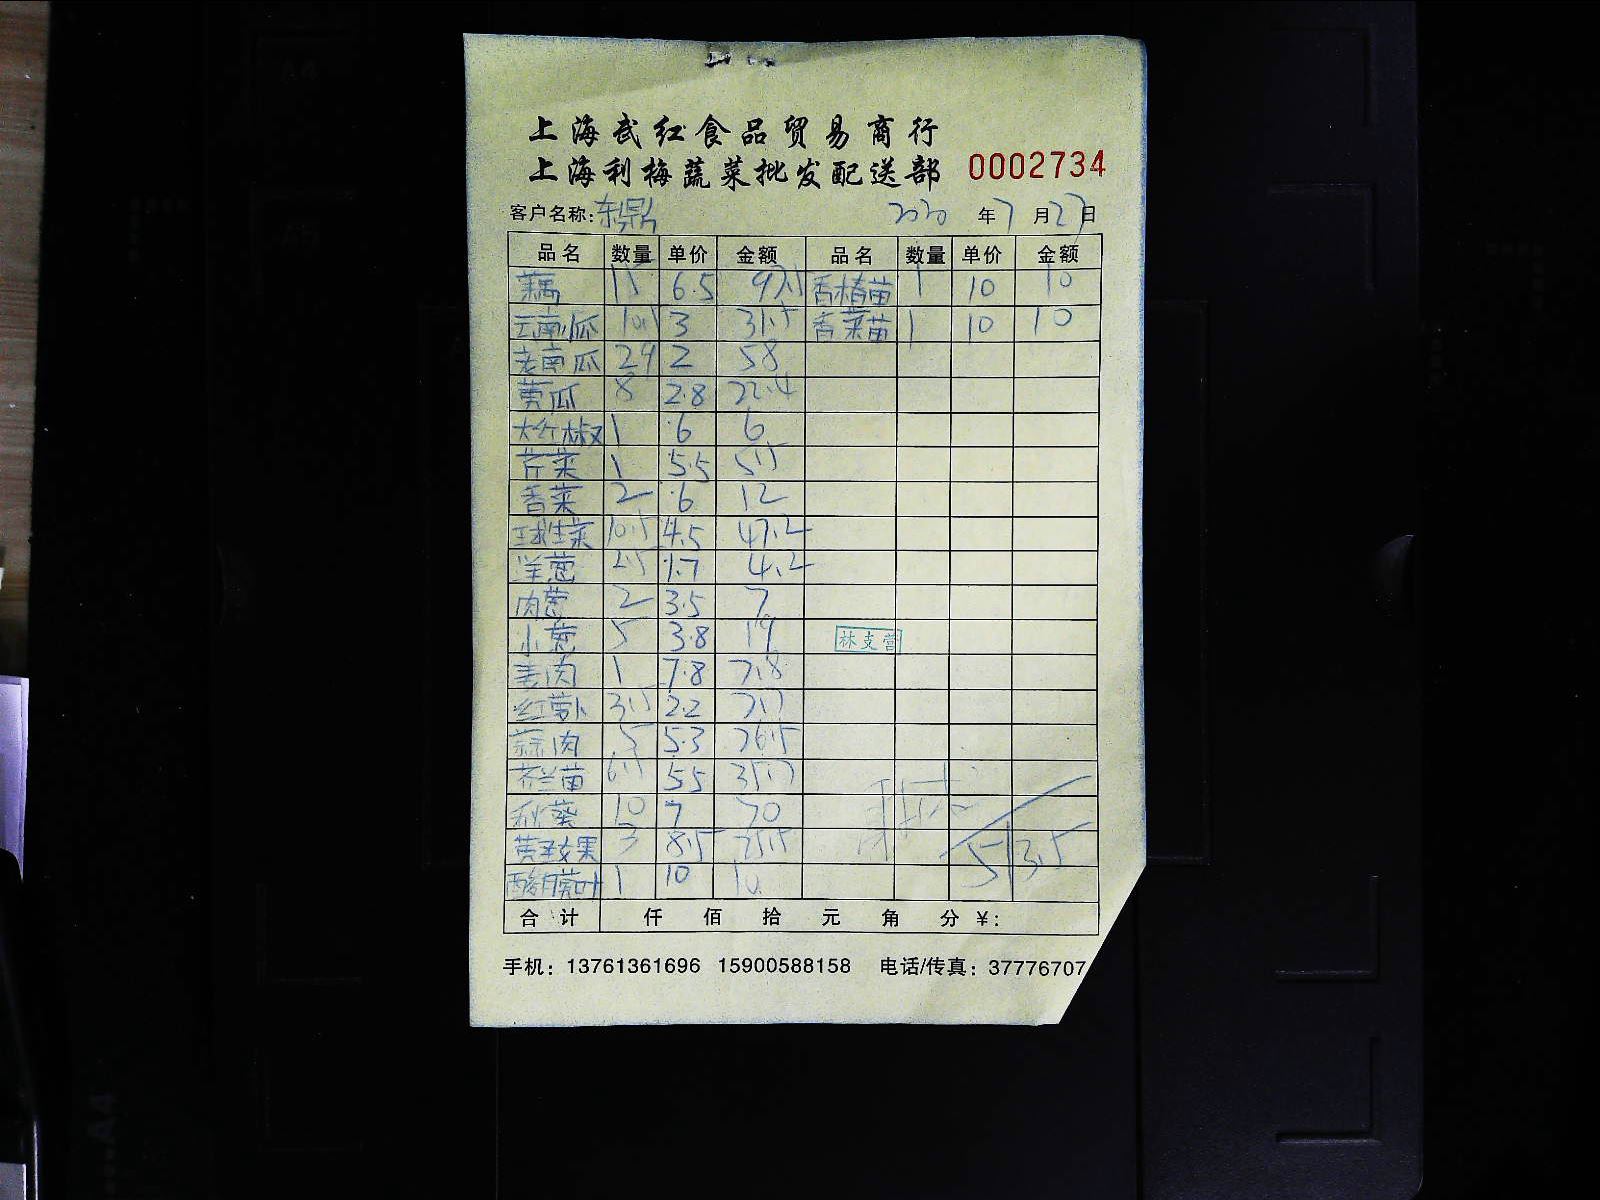 上海武红食品贸易商行
上海利梅蔬菜批发配送部 0002734
客户名称: 东鼎 2020 年 7 月 27 日
品名 数量 单价 金额 品名 数量 单价 金额
藕 15 6.5 97.5 香椿苗 1 10 10
云南小瓜 10.5 3 31.5 香菜苗 1 10 10
老南瓜 29 2 58
黄瓜 8 2.8 22.4
大红椒 1 6 6
芹菜 1 5.5 5.5
香菜 2 6 12
球生菜 10.5 4.5 47.2
洋葱 2.5 1.7 4.2
肉葱 2 3.5 7
小葱 5 3.8 19 林支营
姜肉 1 7.8 7.8
红萝卜 3.5 2.2 7.7
蒜肉 5 5.3 26.5
芥兰苗 6.5 5.5 35.7
秋葵 10 7 70
黄圣女果 3 8.5 25.5 513.5
酸模叶 1 10 10
合计 仟 佰 拾 元 角 分 ¥:
手机: 13761361696 15900588158 电话/传真: 37776707